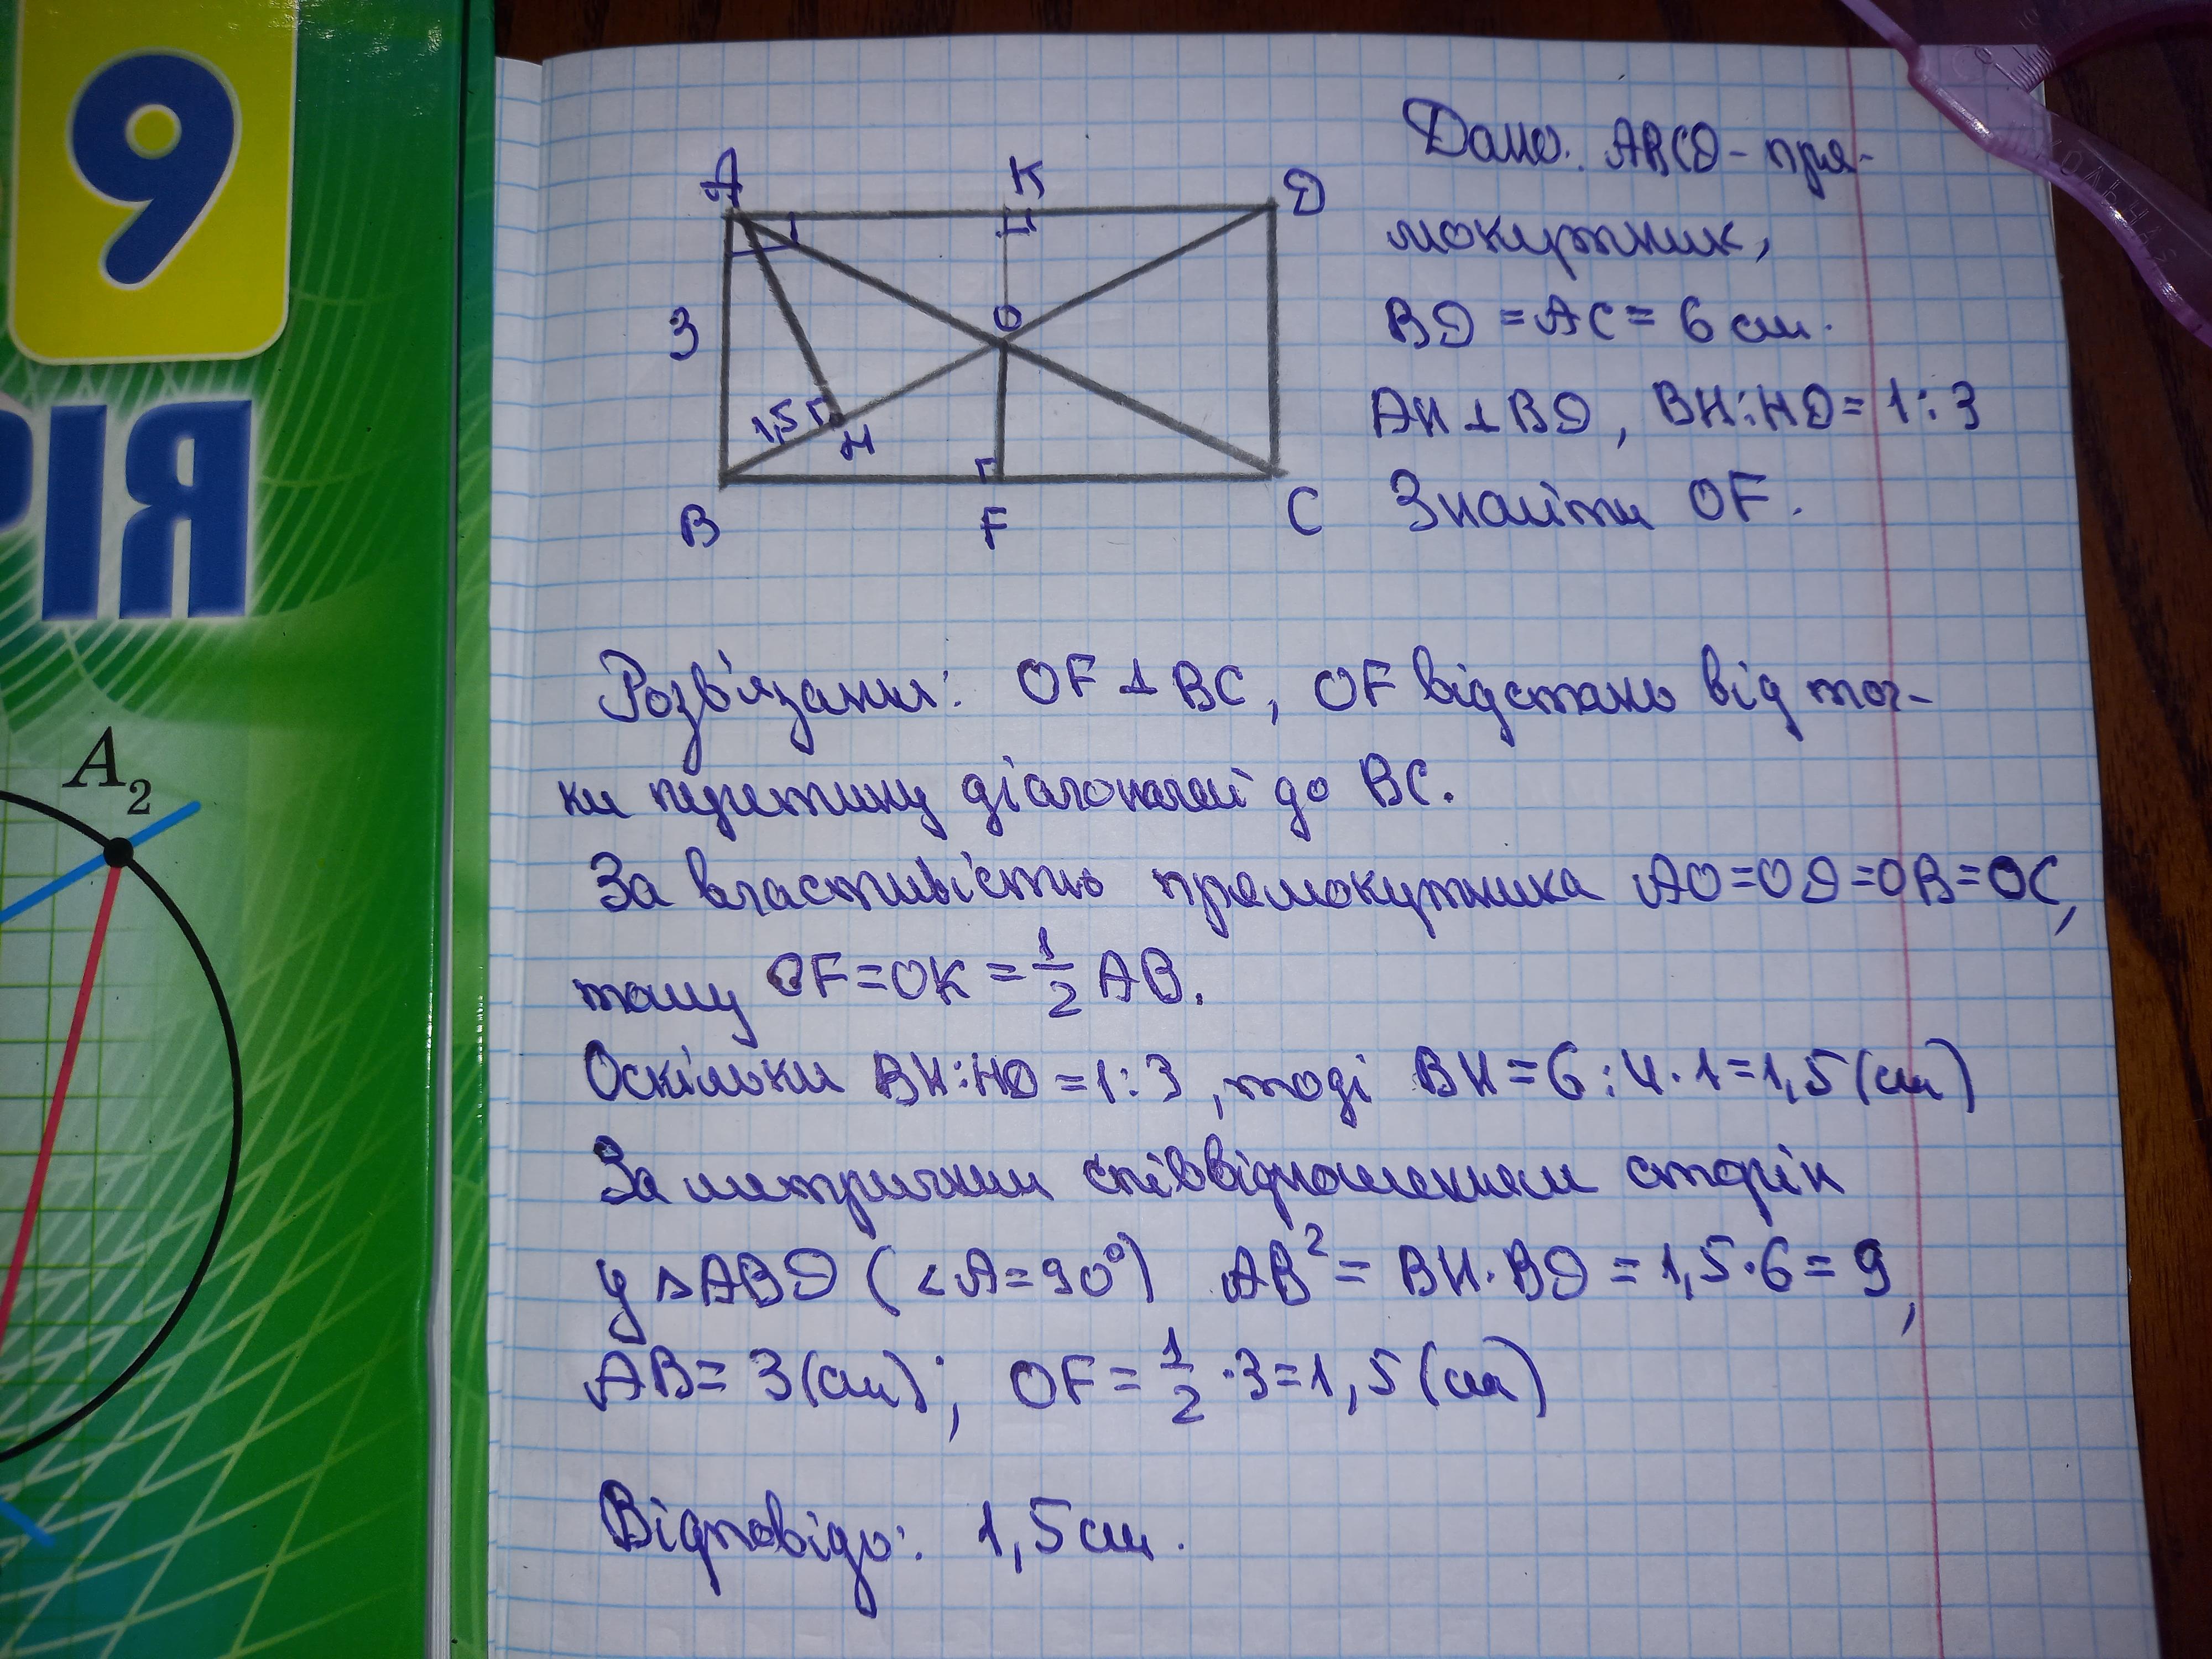 9
РІЯ
A₂
A K D
3 O
1,5 H
B F C
Дано: ABCD - пря-
мокутник,
BD = AC = 6 см.
AH ⊥ BD, BH:HD = 1:3
Знайти OF.
Розв'язання: OF ⊥ BC, OF відстань від точ-
ки перетину діагоналей до BC.
За властивістю прямокутника AO=OD=OB=OC,
тому OF=OK = 1/2 AB.
Оскільки BH:HD = 1:3, тоді BH = 6:4·1=1,5 (см)
За метричним співвідношенням сторін
у △ABD (∠A=90°) AB² = BH·BD = 1,5·6 = 9,
AB = 3 (см); OF = 1/2 ·3=1,5 (см)
Відповідь: 1,5 см.